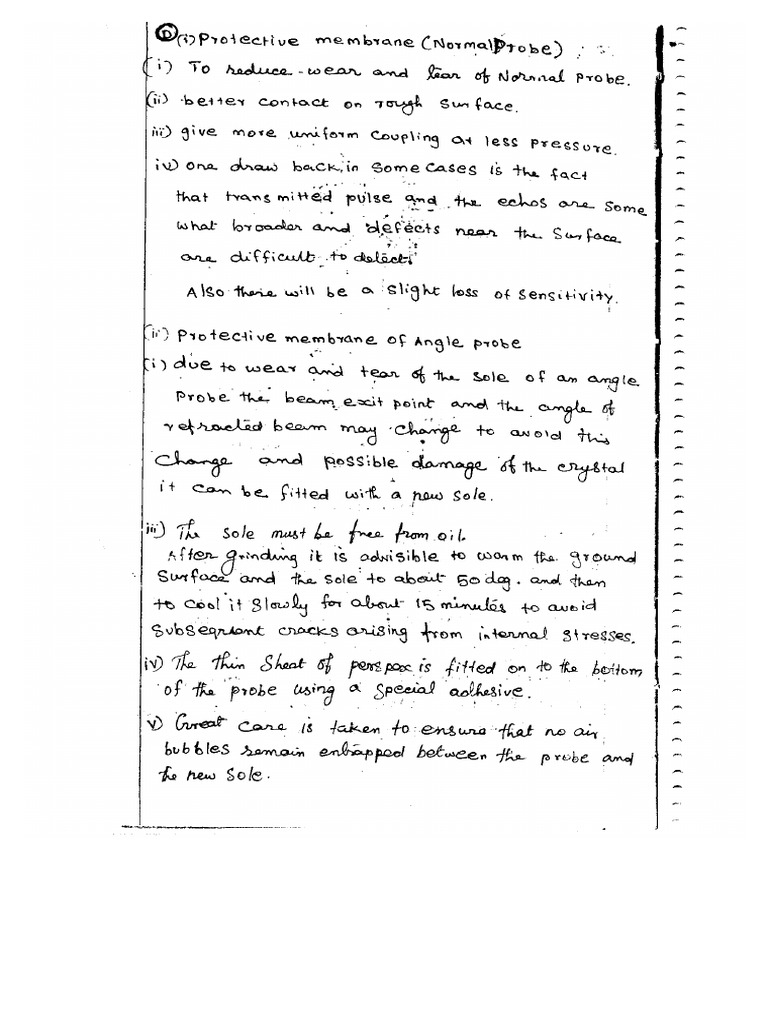 D (i) Protective membrane (Normal Probe)
(i) To reduce wear and tear of Normal Probe.
(ii) better contact on rough surface.
iii) give more uniform coupling at less pressure.
iv) one draw back in some cases is the fact
that transmitted pulse and the echos are some
what broader and defects near the surface
are difficult to detect.
Also there will be a slight loss of sensitivity.
(ii) Protective membrane of Angle probe
(i) due to wear and tear of the sole of an angle
Probe the beam exit point and the angle of
refracted beam may change to avoid this
change and possible damage of the crystal
it can be fitted with a new sole.
iii) The sole must be free from oil.
After grinding it is advisible to warm the ground
surface and the sole to about 50 deg. and then
to cool it slowly for about 15 minutes to avoid
subseqriant cracks arising from internal stresses.
iv) The thin Sheat of perspex is fitted on to the bottom
of the probe using a special adhesive.
v) Great care is taken to ensure that no air
bubbles remain entrapped between the probe and
the new sole.